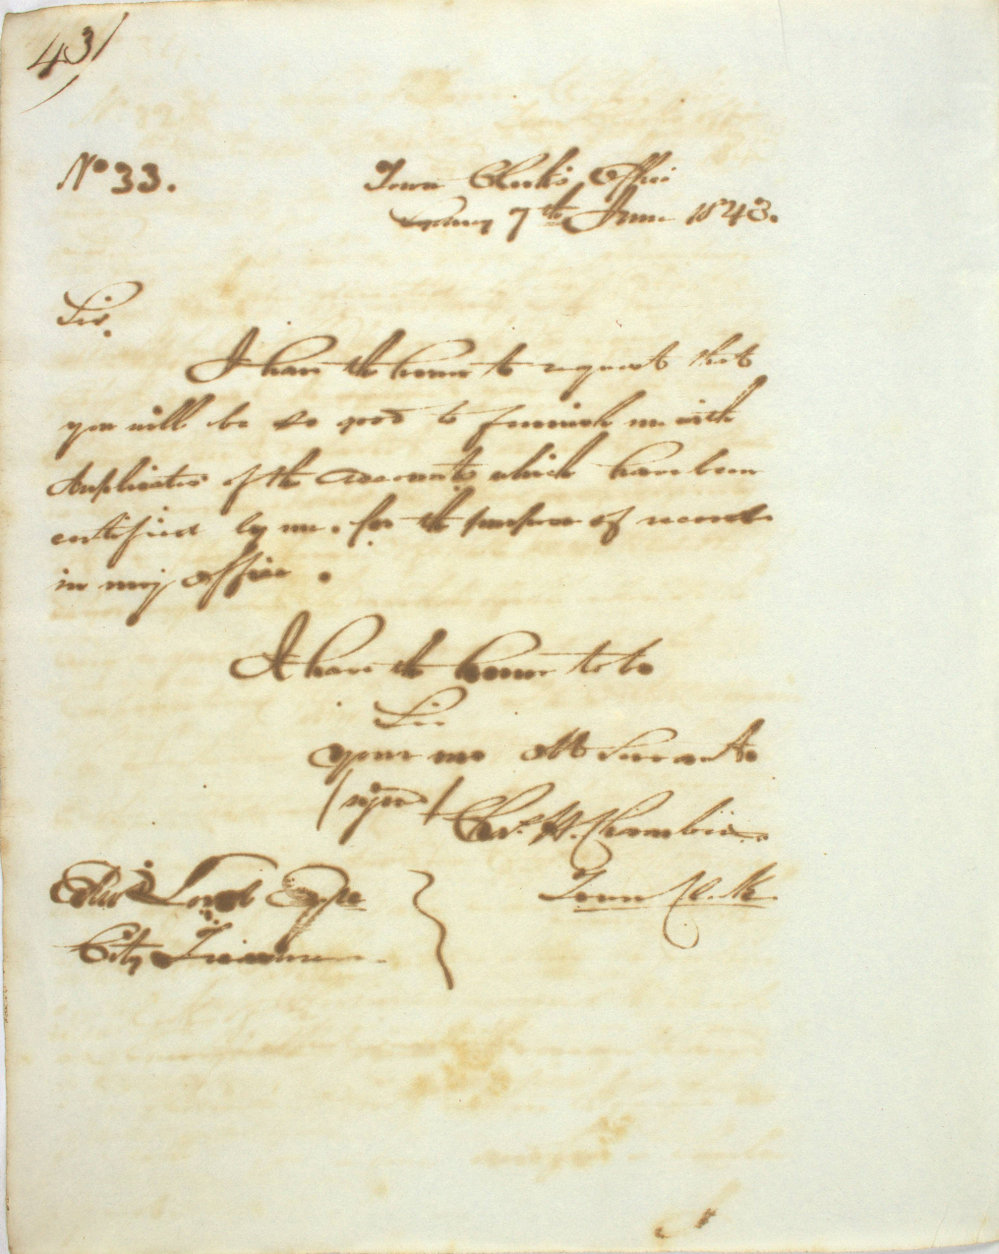 43/
No 33.
Town Clerk's Office
Sydney 7th June 1843.
Sir,
I have the honor to request that
you will be so good to furnish me with
duplicates of the accounts which have been
certified by me, for the purpose of record
in my office.
I have the honor to be
Sir
your mo Obt Servant
(signd) Chas. H. Chambers
Town Clerk
Edwd Lord Esqre
City Treasurer